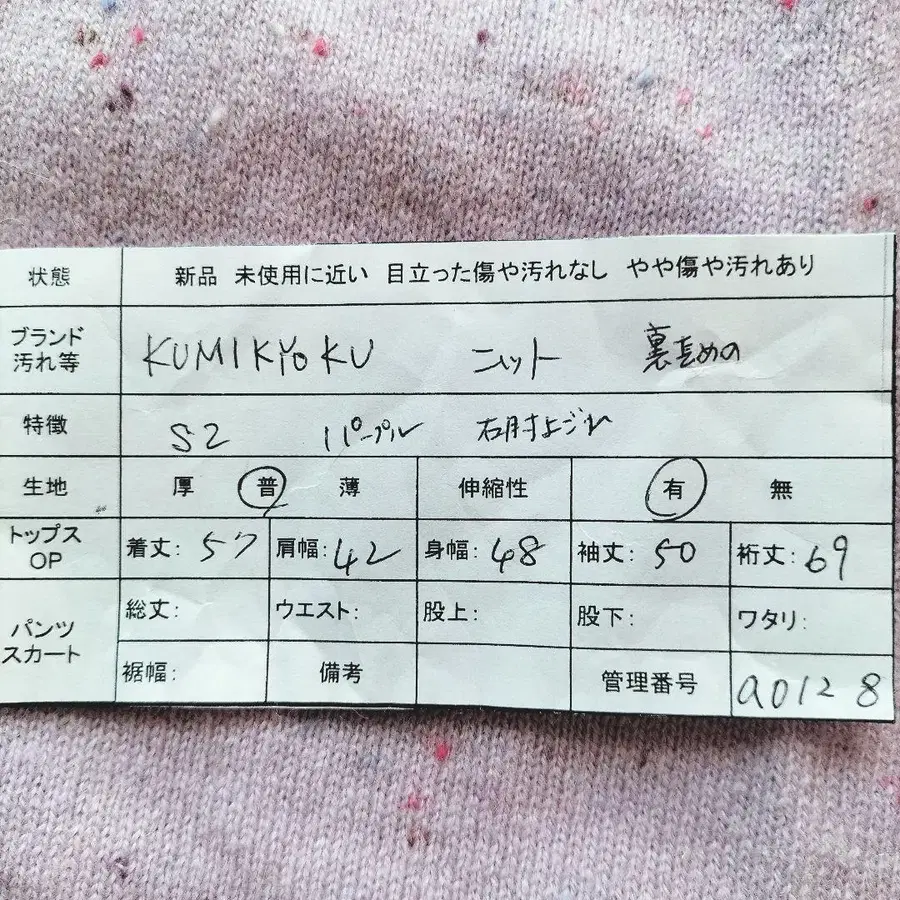 状態 新品 未使用に近い 目立った傷や汚れなし やや傷や汚れあり
ブランド 汚れ等 KUMIKYOKU ニット
特徴 S2 パープル 右肘よごれ
生地 厚 普 薄 伸縮性 有 無
トップス OP 着丈: 57 肩幅: 42 身幅: 48 袖丈: 50 裄丈: 69
パンツ スカート 総丈: ウエスト: 股上: 股下: ワタリ:
裾幅: 備考 管理番号 a0128